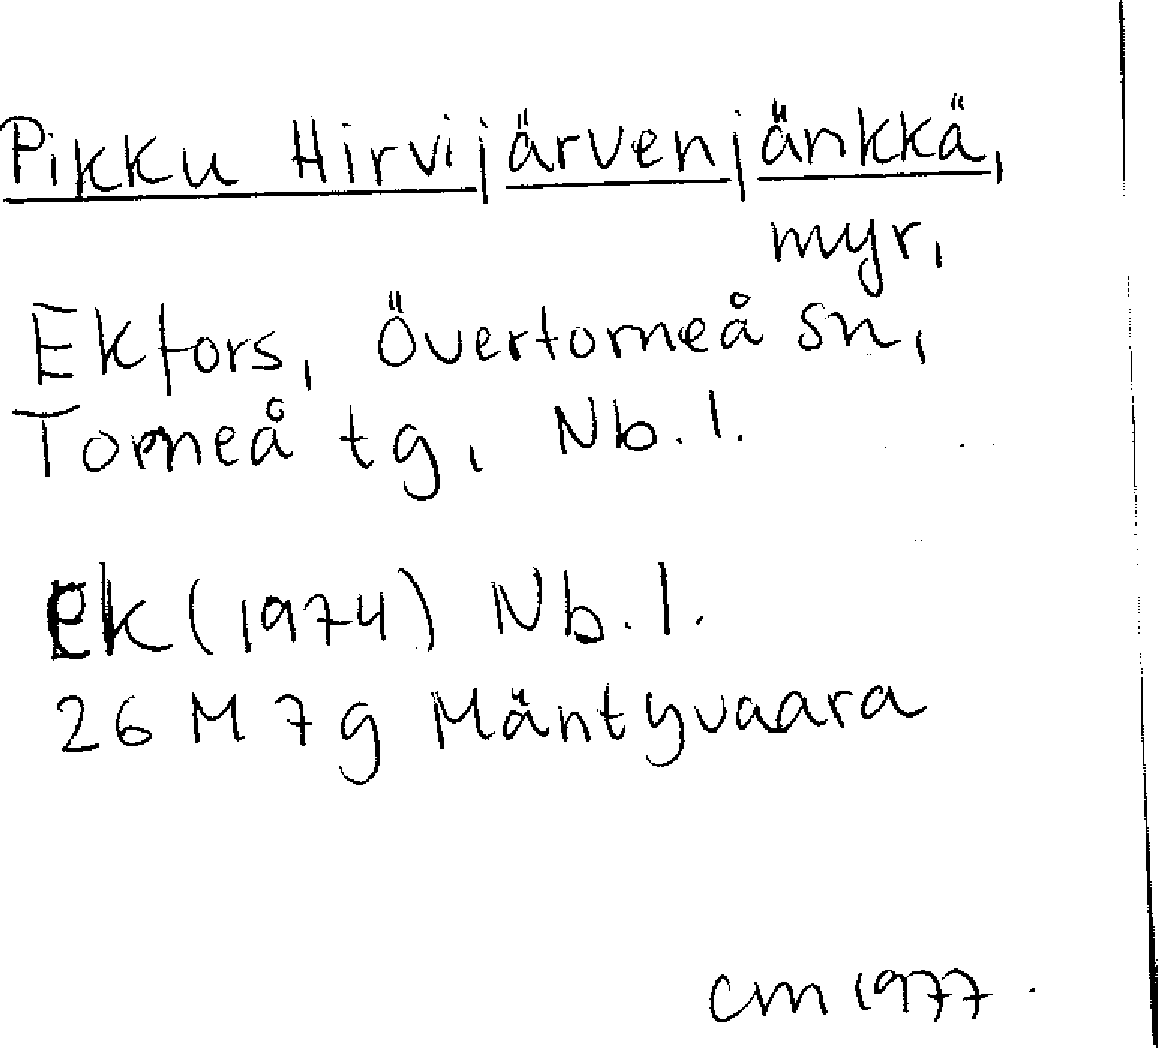 Pikku Hirvijärvenjänkkä,
myr,
Ekfors, Övertorneå sn,
Torneå tg, Nb. l.
Ek (1974) Nb. l.
26 M 7 g Mäntyvaara
CM 1977.